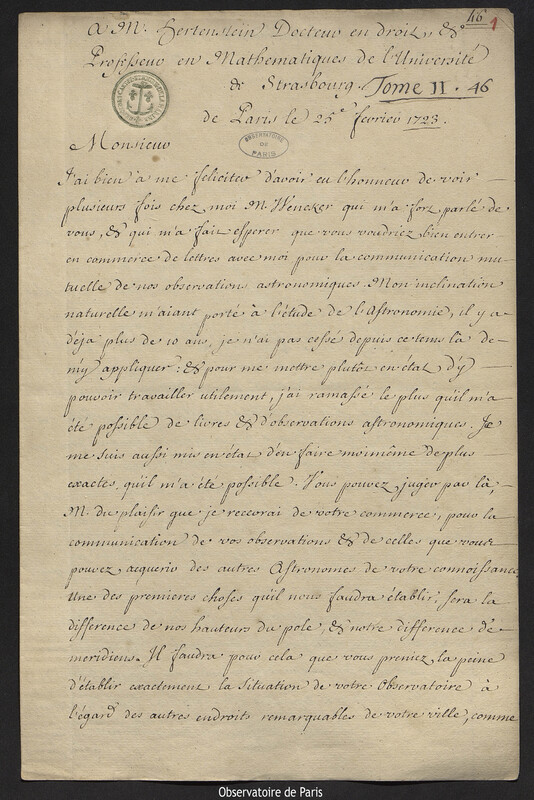 46
1
A M. Hertenstein Docteur en droit, &c
Professeur en Mathematiques de l'Université
de Strasbourg. Tome II. 46
de Paris le 25e fevrier 1723.
OBSERVATOIRE
DE
PARIS
Monsieur
J'ai bien à me feliciter d'avoir eu l'honneur de voir
plusieurs fois chez moi M. Wencker qui m'a fort parlé de
vous, & qui m'a fait esperer que vous voudriez bien entrer
en commerce de lettres avec moi pour la communication mu-
tuelle de nos observations astronomiques. Mon inclination
naturelle m'aiant porté à l'étude de l'Astronomie, il y a
déja plus de 10 ans, je n'ai pas cessé depuis ce tems là de
m'y appliquer: & pour me mettre plutôt en état d'y
pouvoir travailler utilement, j'ai ramassé le plus qu'il m'a
été possible de livres & d'observations astronomiques. Je
me suis aussi mis en état d'en faire moimême de plus
exactes, qu'il m'a été possible. Vous pouvez juger par là,
M. du plaisir que je recevrai de votre commerce, pour la
communication de vos observations & de celles que vous
pouvez acquerir des autres Astronomes de votre connoissance
Une des premieres choses qu'il nous faudra établir, sera la
difference de nos hauteurs du pole, & notre difference de
meridiens. Il faudra pour cela que vous preniez la peine
d'établir exactement la Situation de votre Observatoire à
l'égard des autres endroits remarquables de votre ville, comme
Observatoire de Paris